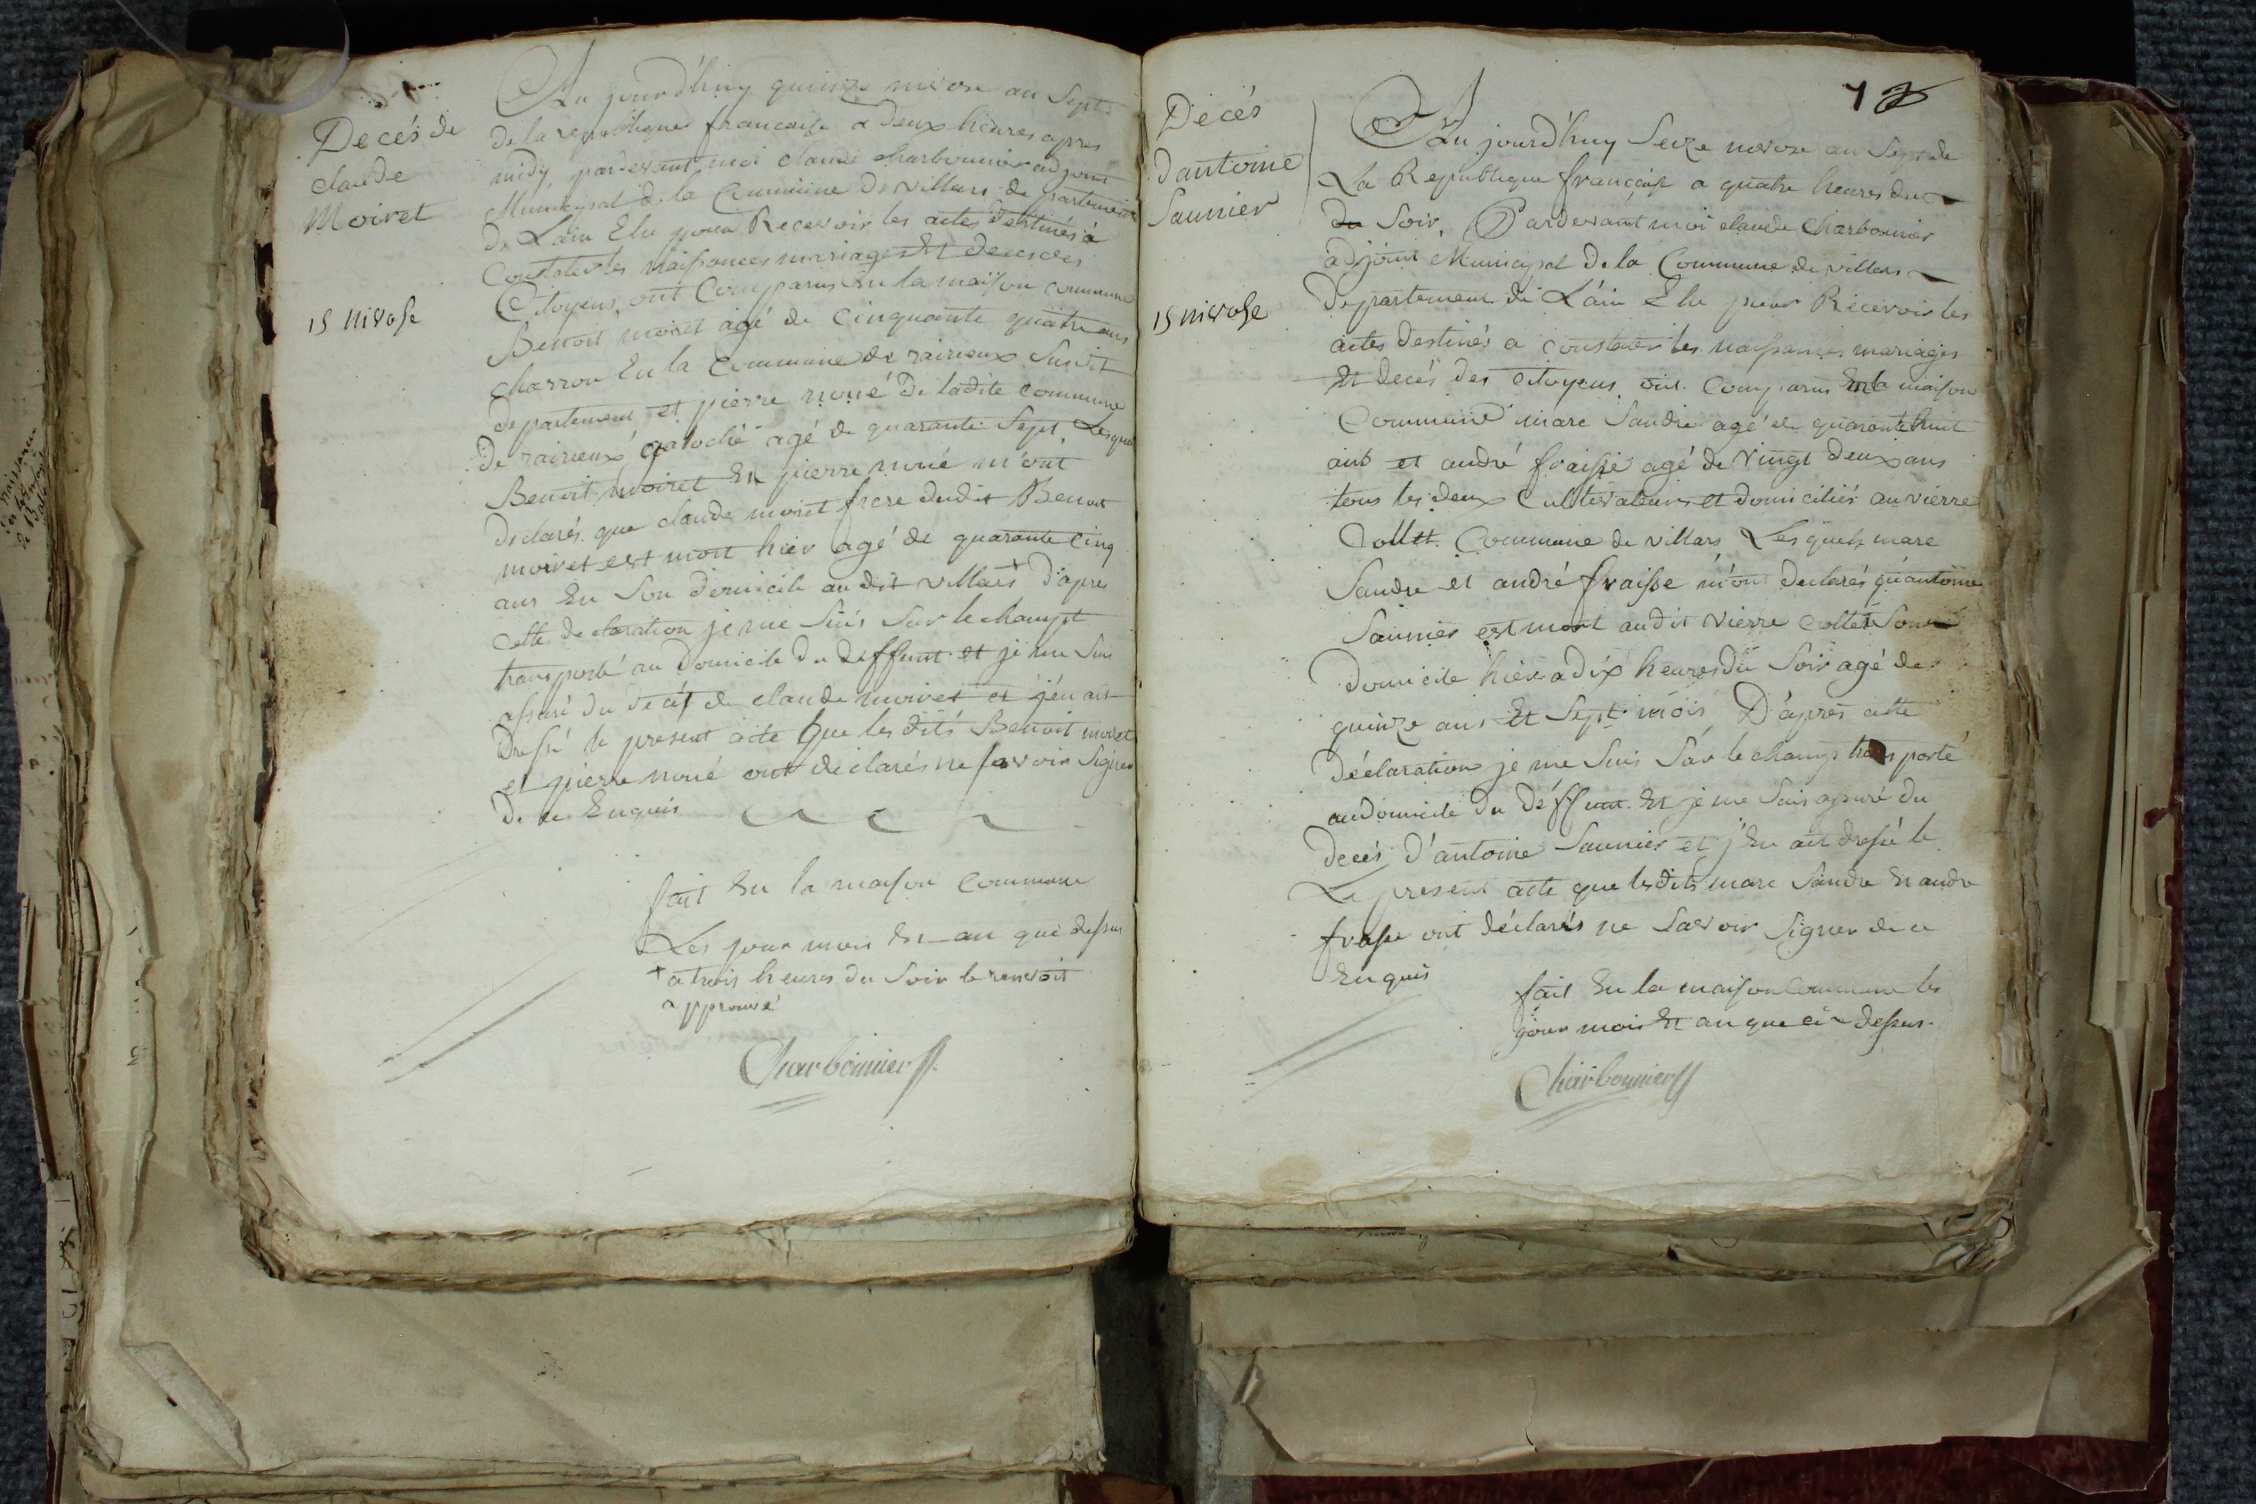 Decès de
claude
Moiret
15 nivose
Au jourd'huy quinze nivose an sept
de la republique francaise a deux heures apres
midy, pardevant moi claude charbonnier adjoint
Municipal de la Commune de villars departement
de L'ain Elu pour Recevoir les actes destinés a
Constater les naissances mariages Et deces des
Citoyens, ont Comparus En la maison commune
Benoit moiret agé de Cinquante quatre ans
charron En la Commune de rairieux Susdit
departement, et pierre noué de ladite commune
de rairieux galoché agé de quarante Sept, Lesquels
Benoit moiret Et pierre noué m'ont
declarés que claude moiret frere dudit Benoit
moiret est mort hier agé de quarante Cinq
ans En Son domicile audit villars + d'apres
cette declaration je me Suis Sur le champt
transporté au domicile du deffunt et je me Suis
assuré du decés de claude moiret et j'en ait
dressé le present acte que les dits Benoit moiret
et pierre noué ont déclarés ne savoir Signer
de ce Enquis
fait En la maison commune
Les jour mois Et an que dessus
+ a trois heures du Soir le renvoit
approuvé
Charbonnier
Décés
dantoine
Saunier
15 nivose
Au jourd'huy Seize nivose an Sept de
La Republique françoise a quatre heures du
du Soir, Pardevant moi claude Charbonnier
adjoint Municipal de la Commune de villars
departement de L'ain Elu pour Recevoir les
actes destinés a constater les naissances mariages
Et decés des citoyens, ont Comparus En la maison
Commune marc Sandre agé de quarante huit
ans et andré fraisse agé de vingt deux ans
tous les deux Cultivateurs et domiciliés au vierre
Collet Commune de villars Les quels marc
Sandre et andré fraisse m'ont declarés qu'antoine
Saunier est mort audit vierre collet Son
domicile hier a dix heures du Soir agé de
quinze ans Et Sept mois, D'après cette
déclaration je me Suis Sur le champ transporté
au domicile du déffunt Et je me Suis assuré du
decés d'antoine Saunier et j'En ait dressé le
Le present acte que lesdits marc Sandre Et andre
frasse ont déclarés ne Savoir Signer de ce
Enquis
fait En la maison Commune les
jour mois Et an que ci dessus.
Charbonnier